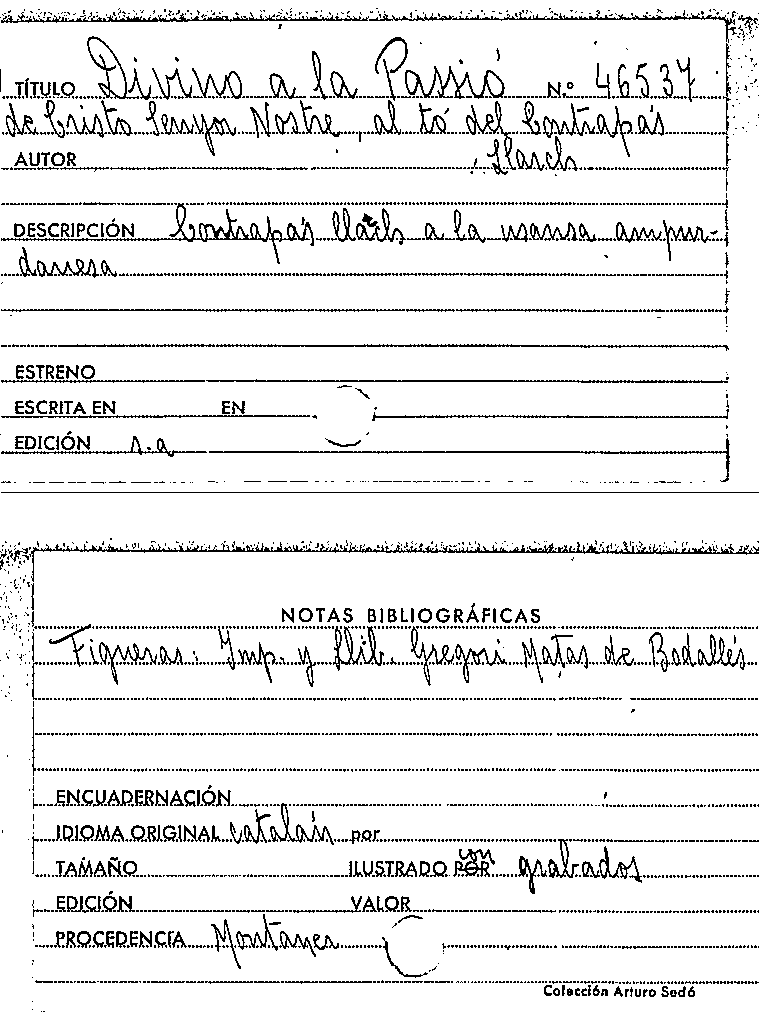 TÍTULO Divino a la Passió N.º 46537
de Cristo Senyor Nostre, al tó del Contrapás
AUTOR Llarch
DESCRIPCIÓN Contrapás llarch a la usansa ampur-
danesa
ESTRENO
ESCRITA EN EN
EDICIÓN s.a
NOTAS BIBLIOGRÁFICAS
Figueras: Imp. y Llib. Gregori Matas de Bodallés
ENCUADERNACIÓN
IDIOMA ORIGINAL catalán por
TAMAÑO ILUSTRADO POR con grabados
EDICIÓN VALOR
PROCEDENCIA Montaner
Colección Arturo Sedó